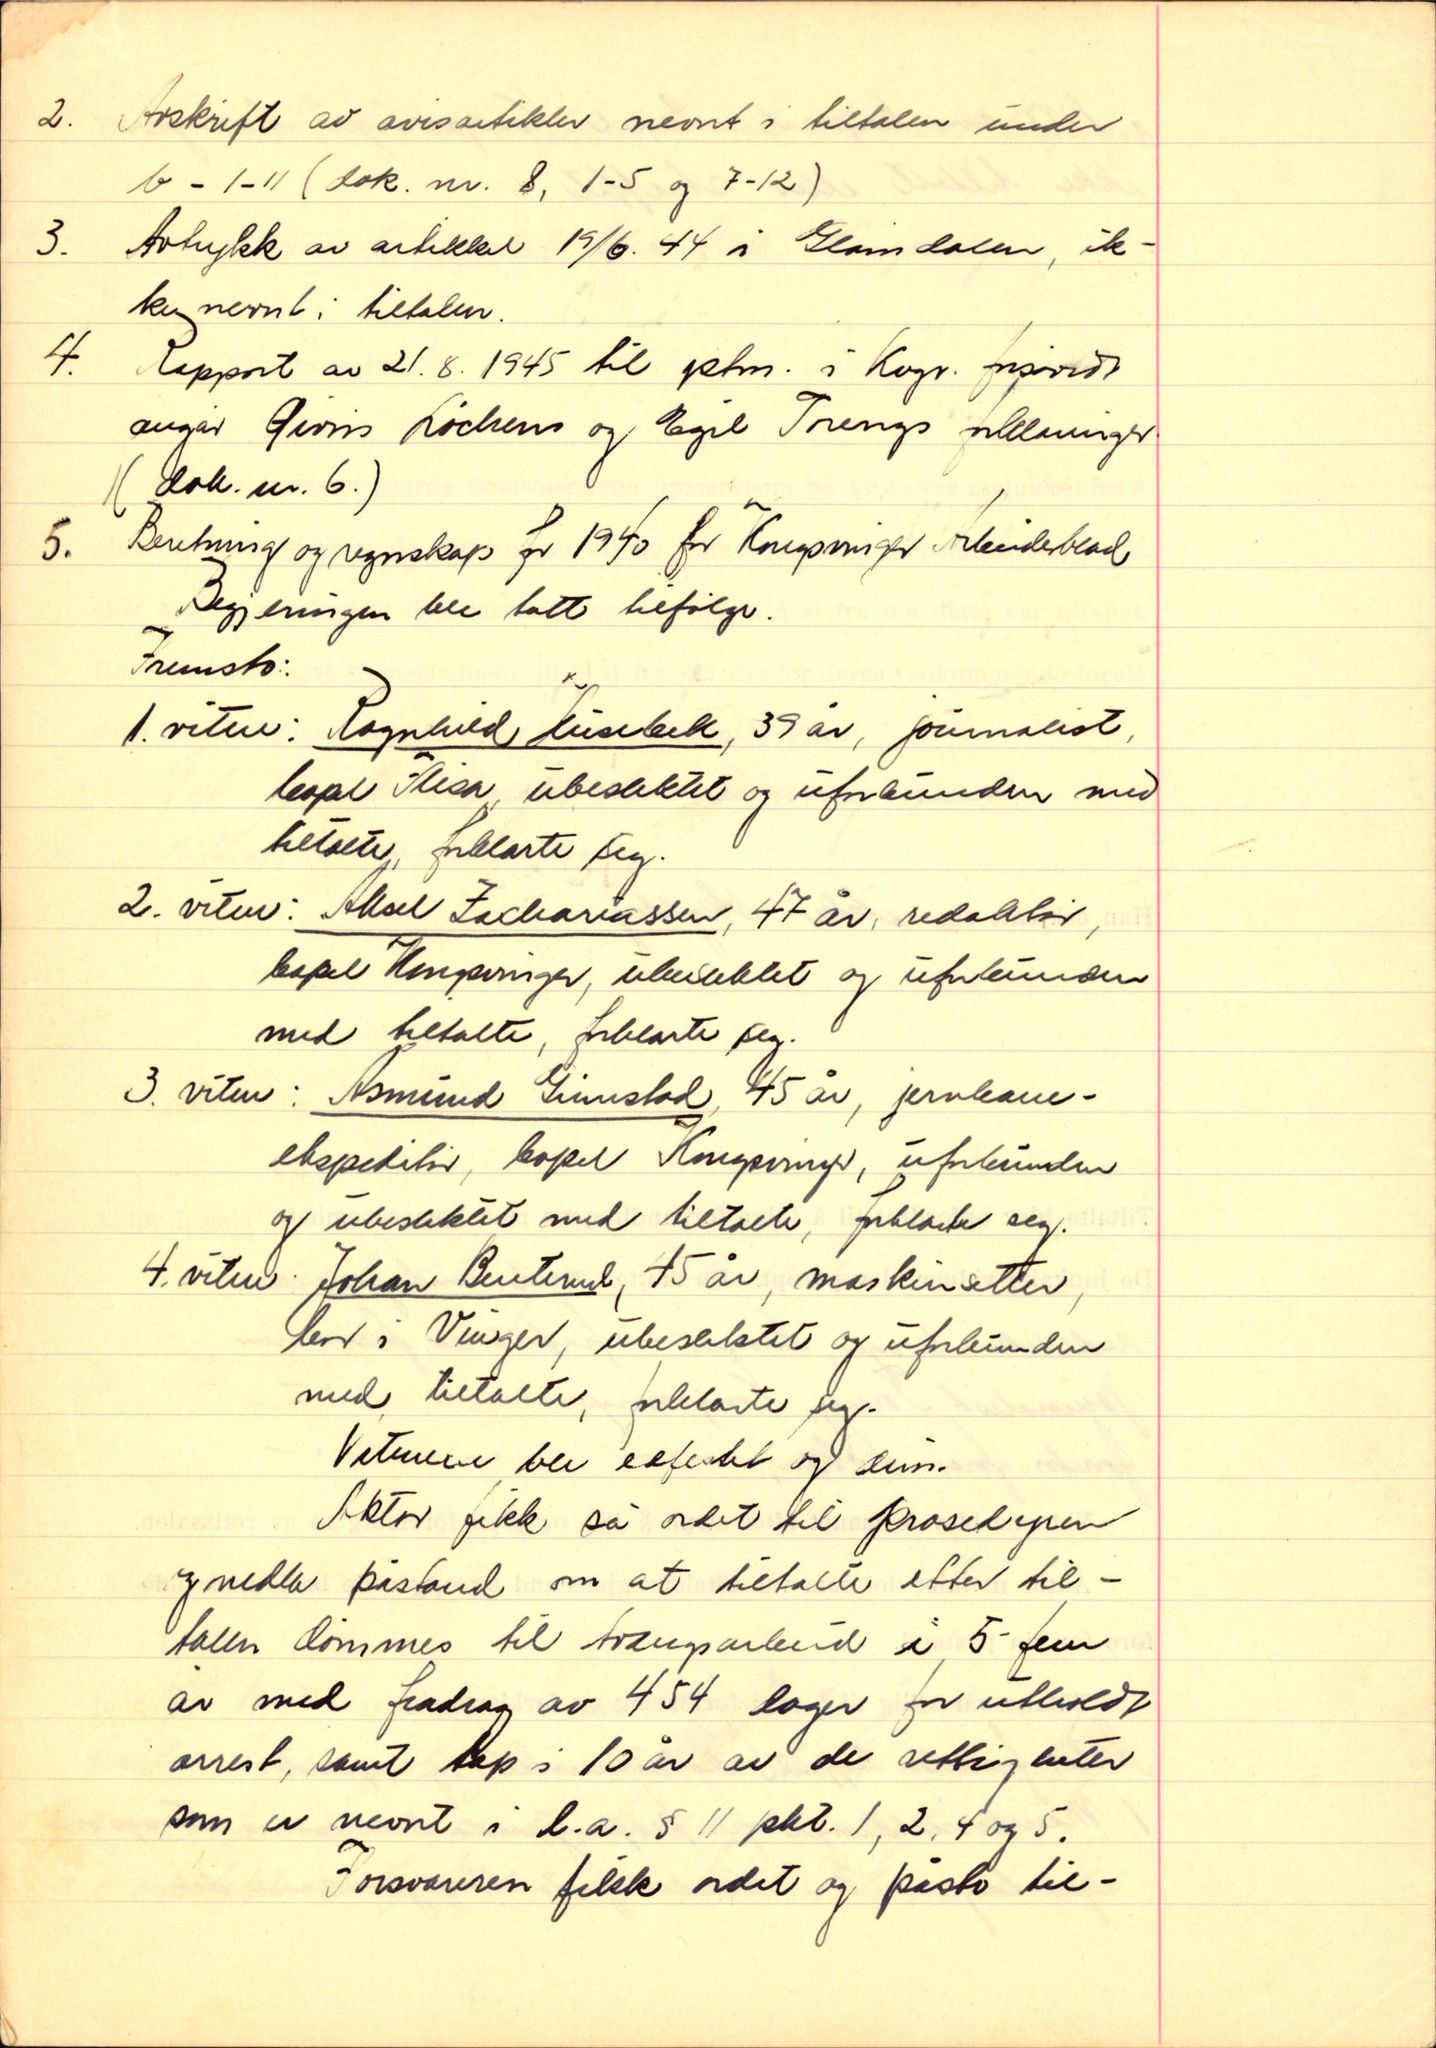 2. Avskrift av avisartikler nevnt i tiltalen under
b - 1-11 (dok. nr. 8, 1-5 og 7-12)
3. Avtrykk av artikkel 19/6. 44 i Glåmdalen, ik-
ke nevnt i tiltalen.
4. Rapport av 21.8.1945 til pkm. i Kvgr. forsåvidt
angår Løchens og Egil Torengs forklaringer
(dok. nr. 6.)
5. Beretning og regnskap for 1940 for Kongsvinger Arbeiderblad
Begjeringen ble tatt tilfølge.
Fremsto:
1. vitne: Ragnhild Husebek, 39 år, journalist,
bopel Flisa, ubeslektet og uforbunden med
tiltalte, forklarte seg.
2. vitne: Aksel Zachariassen, 47 år, redaktør,
bopel Kongsvinger, ubeslektet og uforbunden
med tiltalte, forklarte seg.
3. vitne: Asmund Grinstad, 45 år, jernbane-
ekspeditør, bopel Kongsvinger, uforbunden
og ubeslektet med tiltalte, forklarte seg.
4. vitne: Johan Benterud, 45 år, maskinsetter,
bor i Vinger, ubeslektet og uforbunden
med tiltalte, forklarte seg.
Vitnene ble edfestet og dim.
Aktor fikk så ordet til prosedyren
og nedla påstand om at tiltalte etter til-
talen dømmes til tvangsarbeid i 5 fem
år med fradrag av 454 dager for utholdt
arrest, samt tap i 10 år av de rettigheter
som er nevnt i l.a. § 11 pkt. 1, 2, 4 og 5.
Forsvareren fikk ordet og påsto til-